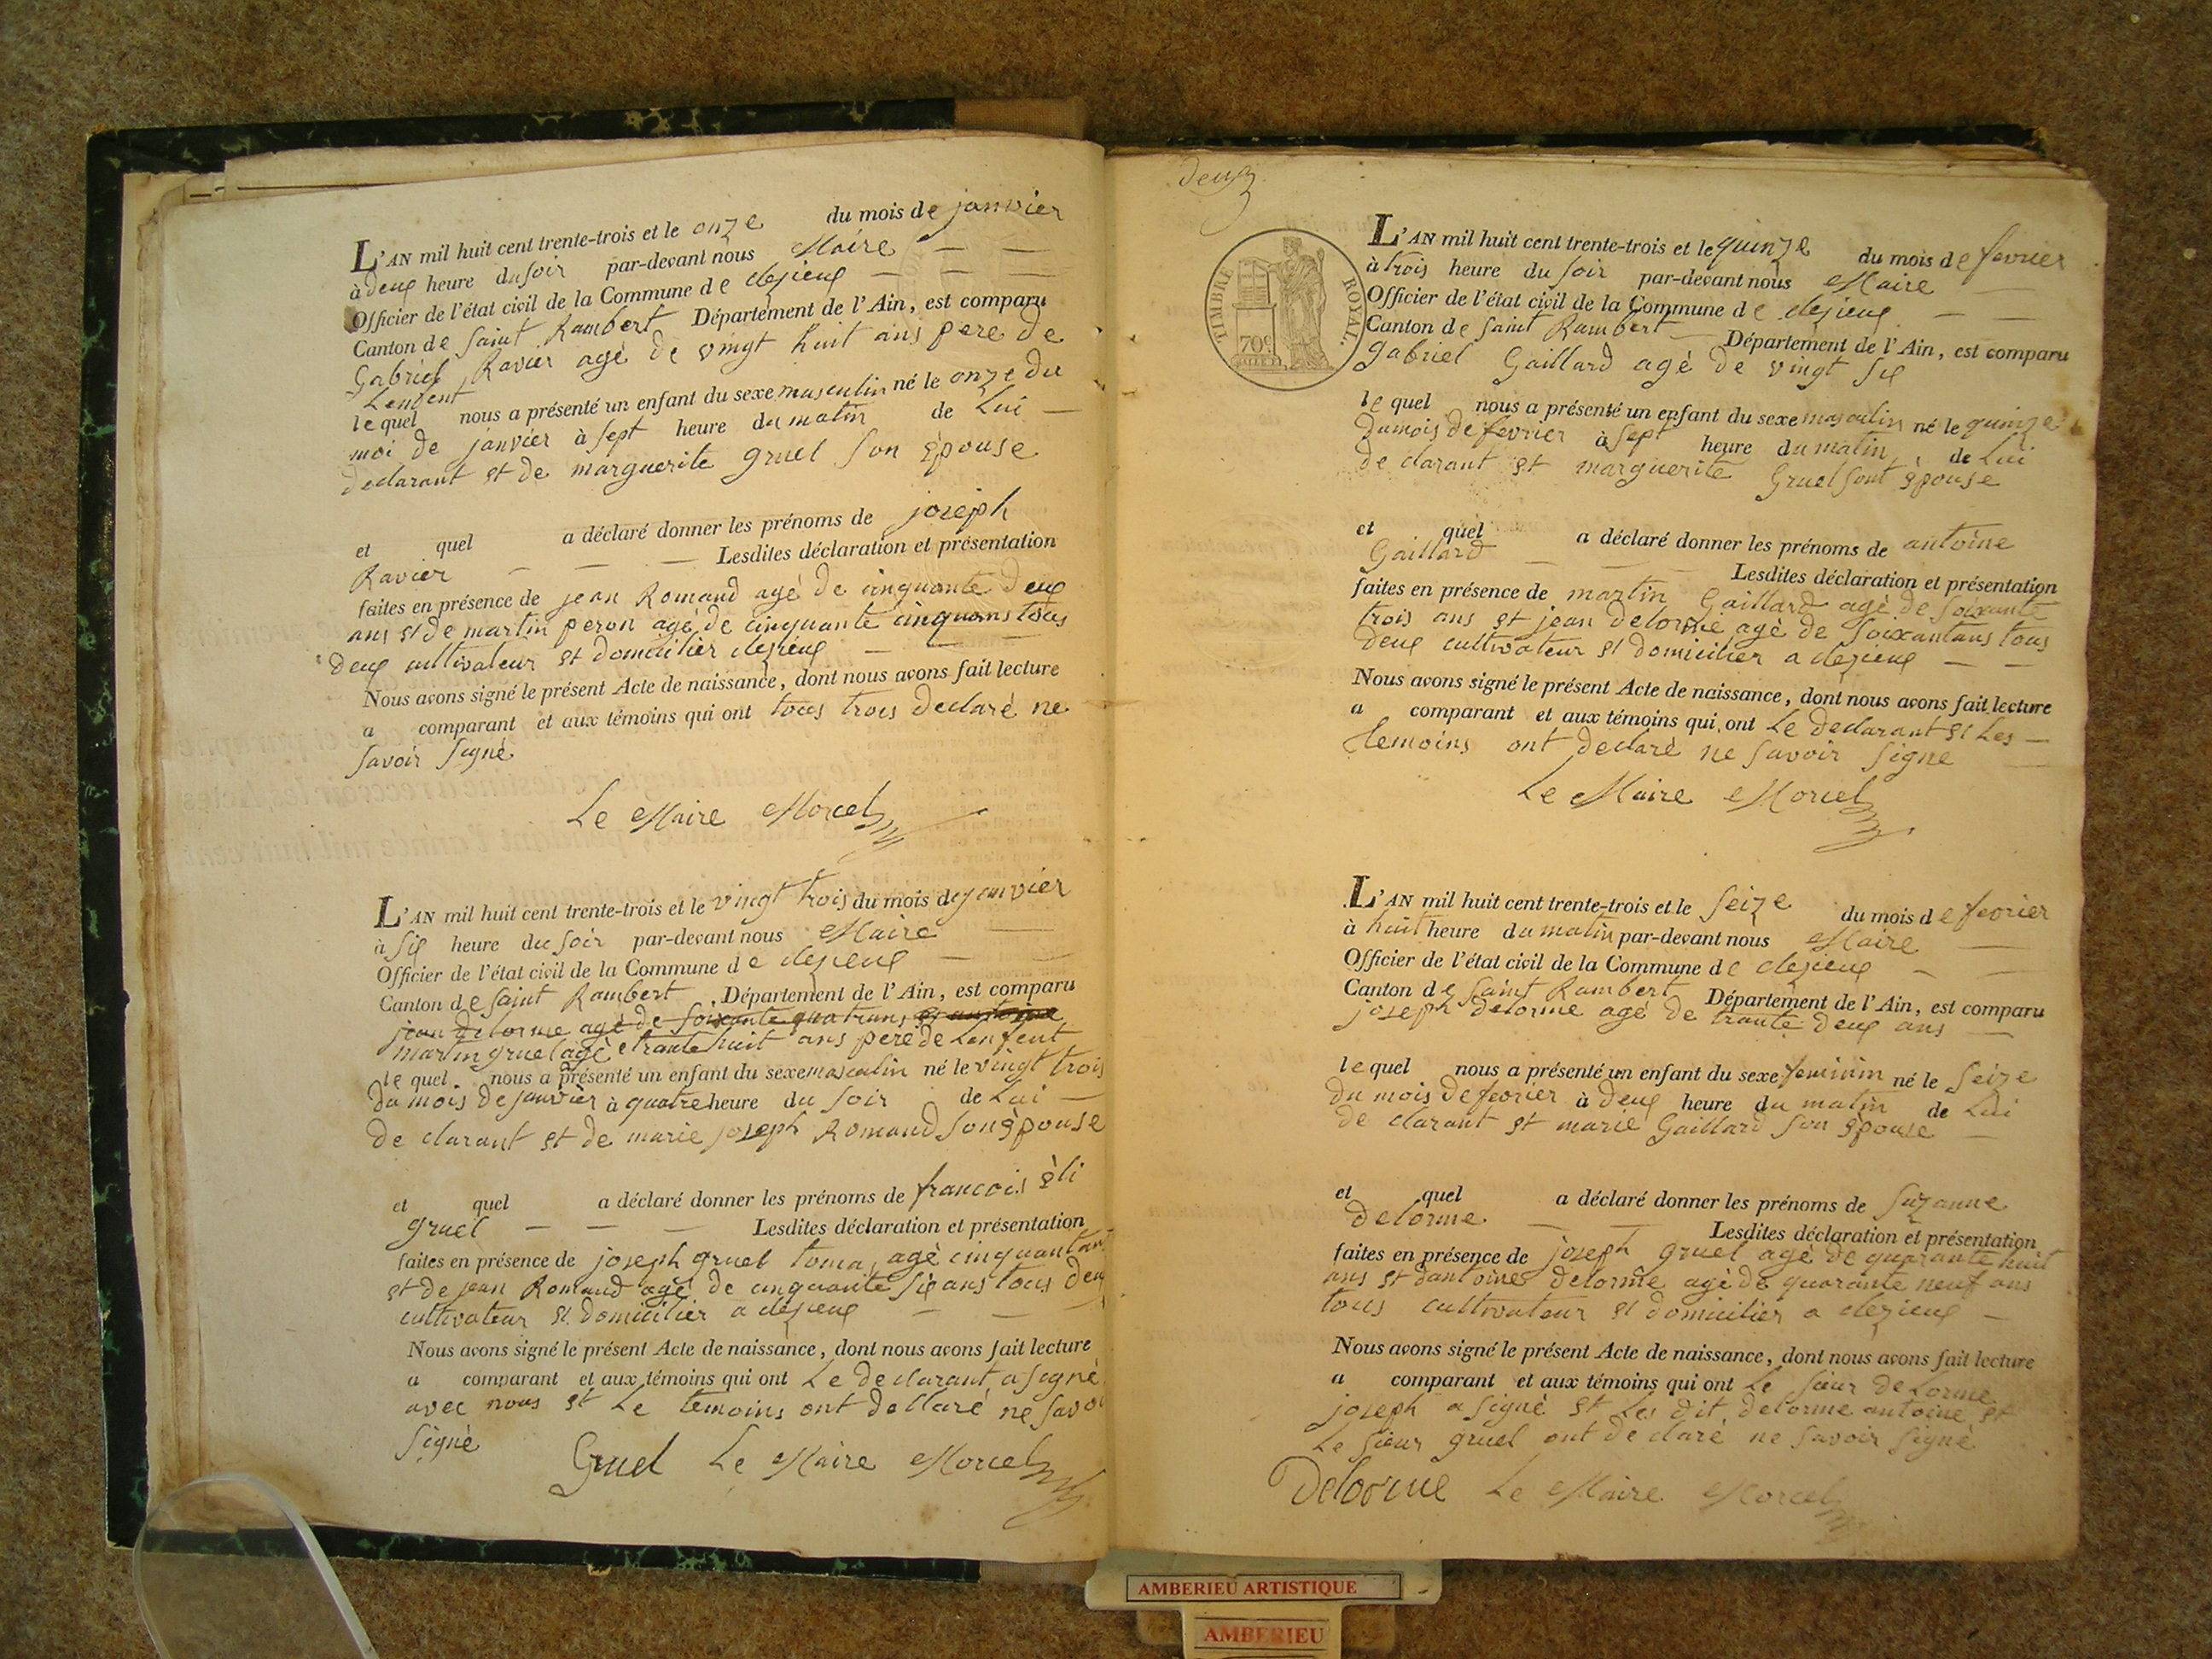 L'AN mil huit cent trente-trois et le onze du mois de janvier
à deux heure du soir par-devant nous Maire
Officier de l'état civil de la Commune de clezieux
Canton de saint Rambert Département de l'Ain, est comparu
Gabriel Ravier agé de vingt huit ans pere de
Lenfent
le quel nous a présenté un enfant du sexe masculin né le onze du
moi de janvier à sept heure du matin de Lui
declarant et de marguerite gruel son épouse
et quel a déclaré donner les prénoms de joseph
Ravier Lesdites déclaration et présentation
faites en présence de jean Romand agé de cinquante deux
ans et de martin peron agé de cinquante cinquans tous
deux cultivateur et domicilier clezieux
Nous avons signé le présent Acte de naissance, dont nous avons fait lecture
a comparant et aux témoins qui ont tous trois declaré ne
savoir signé
Le Maire Morcel
L'AN mil huit cent trente-trois et le vingt trois du mois de janvier
à six heure du soir par-devant nous Maire
Officier de l'état civil de la Commune de clezieux
Canton de saint Rambert Département de l'Ain, est comparu
jean delorme agé de soixante quatrans et antoine
martin gruel agé trante huit ans pere de Lenfent
le quel nous a présenté un enfant du sexe masculin né le vingt trois
du mois de janvier à quatre heure du soir de Lui
de clarant et de marie joseph Romand son épouse
et quel a déclaré donner les prénoms de francois èli
gruel Lesdites déclaration et présentation
faites en présence de joseph gruel toma, agé cinquantan
et de jean Romand agé de cinquante six ans tous deux
cultivateur et domicilier a clezieux
Nous avons signé le présent Acte de naissance, dont nous avons fait lecture
a comparant et aux témoins qui ont Le declarant a signé
avec nous et Le temoins ont declaré ne savoi
signé
Gruel Le Maire Morcel
deux
TIMBRE ROYAL.
70c
L'AN mil huit cent trente-trois et le quinze du mois de fevrier
à trois heure du soir par-devant nous Maire
Officier de l'état civil de la Commune de clezieux
Canton de saint Rambert Département de l'Ain, est comparu
gabriel Gaillard agé de vingt six
le quel nous a présenté un enfant du sexe masculin né le quinze
du mois de fevrier à sept heure du matin de Lui
de clarant et marguerite Gruel sont épouse
et quel a déclaré donner les prénoms de antoine
Gaillard Lesdites déclaration et présentation
faites en présence de martin Gaillard agé de soixante
trois ans et jean delorme agé de soixantans tous
deux cultivateur et domicilier a clezieux
Nous avons signé le présent Acte de naissance, dont nous avons fait lecture
a comparant et aux témoins qui ont Le declarant et Les
temoins ont declaré ne savoir signe
Le Maire Morcel
L'AN mil huit cent trente-trois et le seize du mois de fevrier
à huit heure du matin par-devant nous Maire
Officier de l'état civil de la Commune de clezieux
Canton de saint Rambert Département de l'Ain, est comparu
joseph delorme agé de trante deux ans
le quel nous a présenté un enfant du sexe feminin né le seize
du mois de fevrier à deux heure du matin de Lui
de clarant et marie Gaillard son épouse
et quel a déclaré donner les prénoms de suzanne
delorme Lesdites déclaration et présentation
faites en présence de joseph gruel agé de quarante huit
ans et dantoine delorme agé de quarante neuf ans
tous cultivateur et domicilier a clezieux
Nous avons signé le présent Acte de naissance, dont nous avons fait lecture
a comparant et aux témoins qui ont Le sieur delorme
joseph a signé et Les dit delorme antoine et
Le sieur gruel ont de claré ne savoir signé
Delorme Le Maire Morcel
AMBERIEU ARTISTIQUE
AMBERIEU